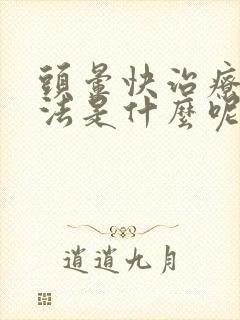 頭暈快治療
法是什麼呢
逍遙九月